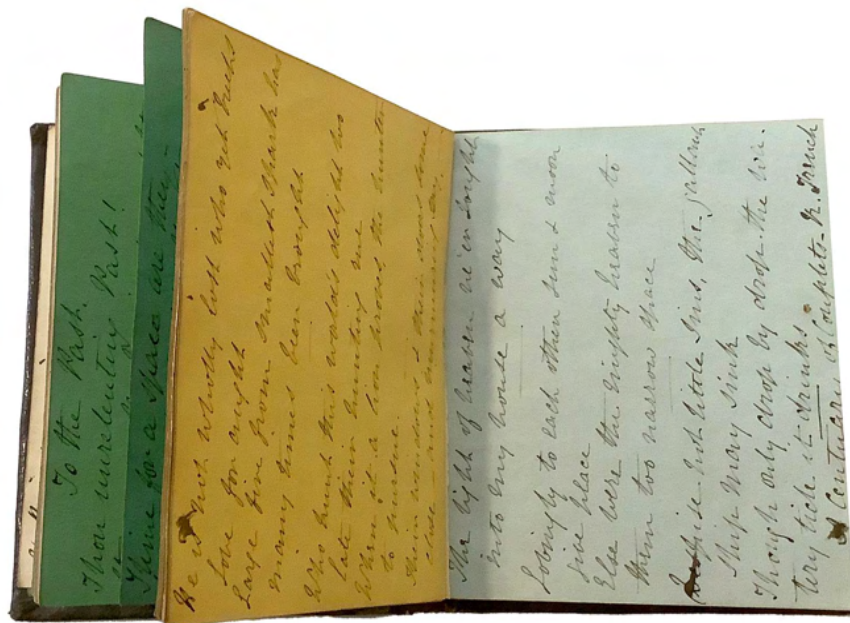 To the Past.
Thou unrelenting Past!
Thine for a space are they
He is not wholly lost who yet
Love for aught
Large fire from smallest spark has
many times been brought
Who hunt this world's delight too
late their hunting rue
When it a lion proves the hunter
to pursue.
The light of heaven
into my house a way
Lovingly to each other sun & moon
give place
Else were the mighty heaven to
them too narrow space
Despise not little sins, the gallant
Ship may sink
Though only drop by drop the
tery tide it drinks.
A Century of Couplets. Dr. Trench